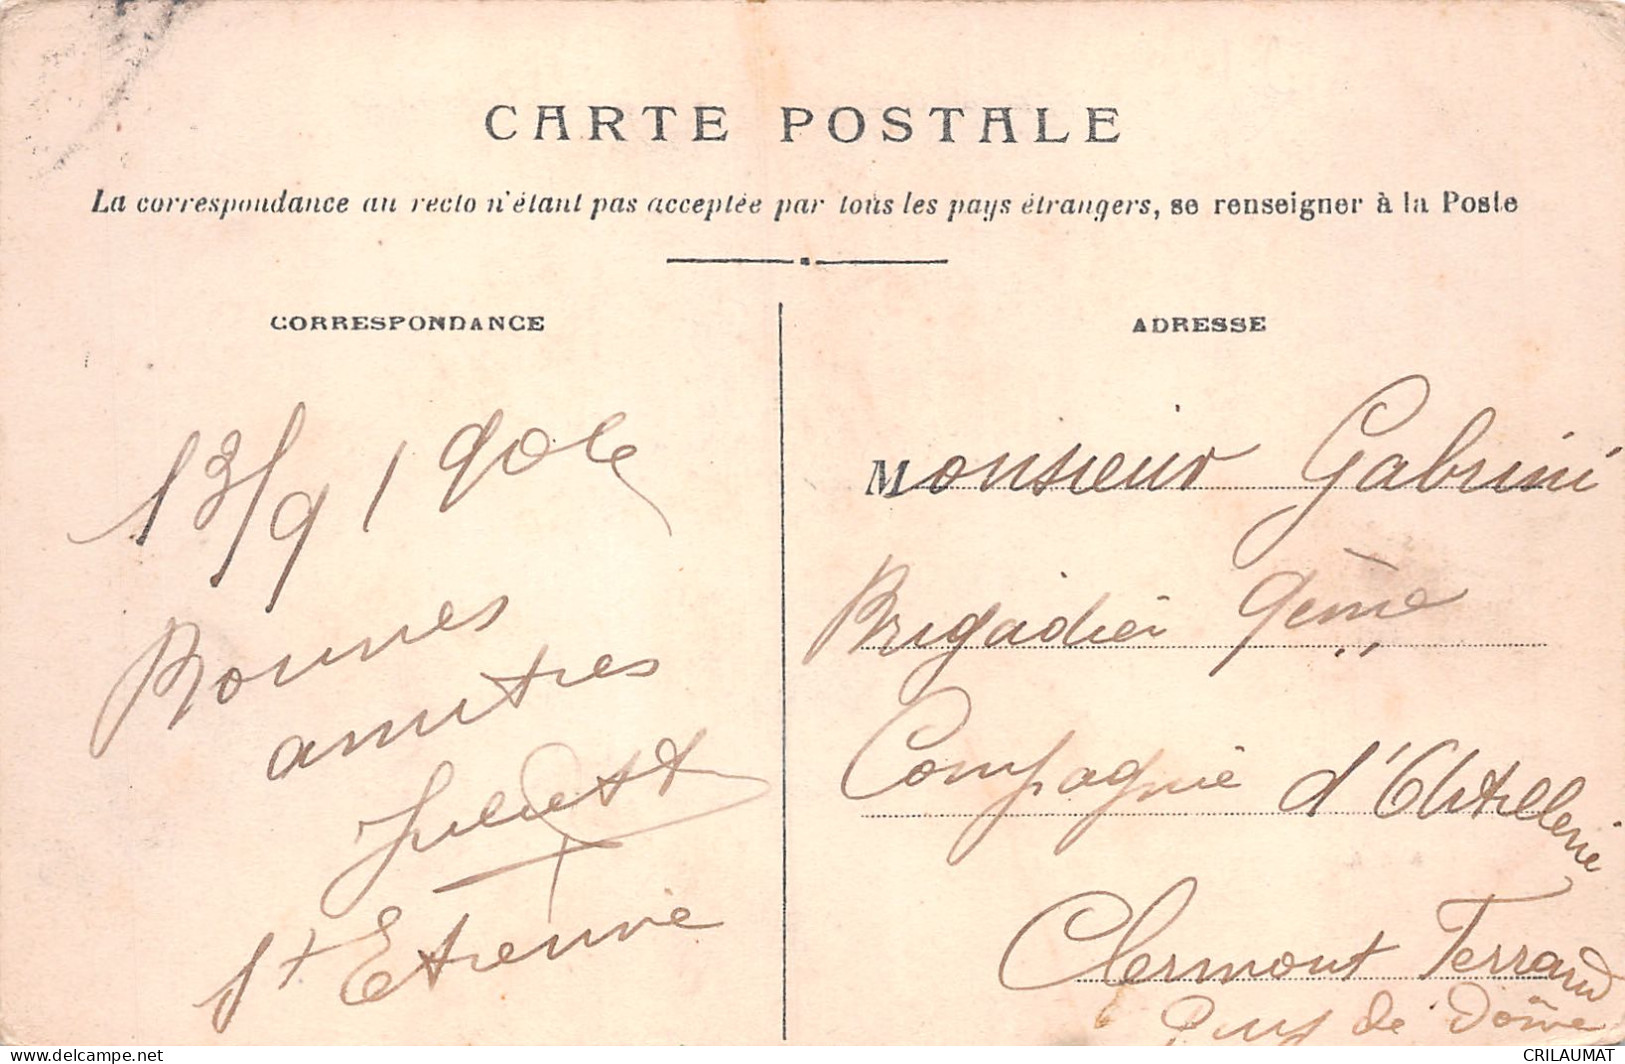 CARTE POSTALE
La correspondance au recto n'étant pas acceptée par tous les pays étrangers, se renseigner à la Poste
CORRESPONDANCE
13/9/1906
Bonnes
amitiés
Juliette
St Etienne
ADRESSE
Monsieur Gabrini
Brigadier 9ème
Compagnie d'Artillerie
Clermont Ferrand
Puy de Dôme
delcampe.net
CRILAUMAT